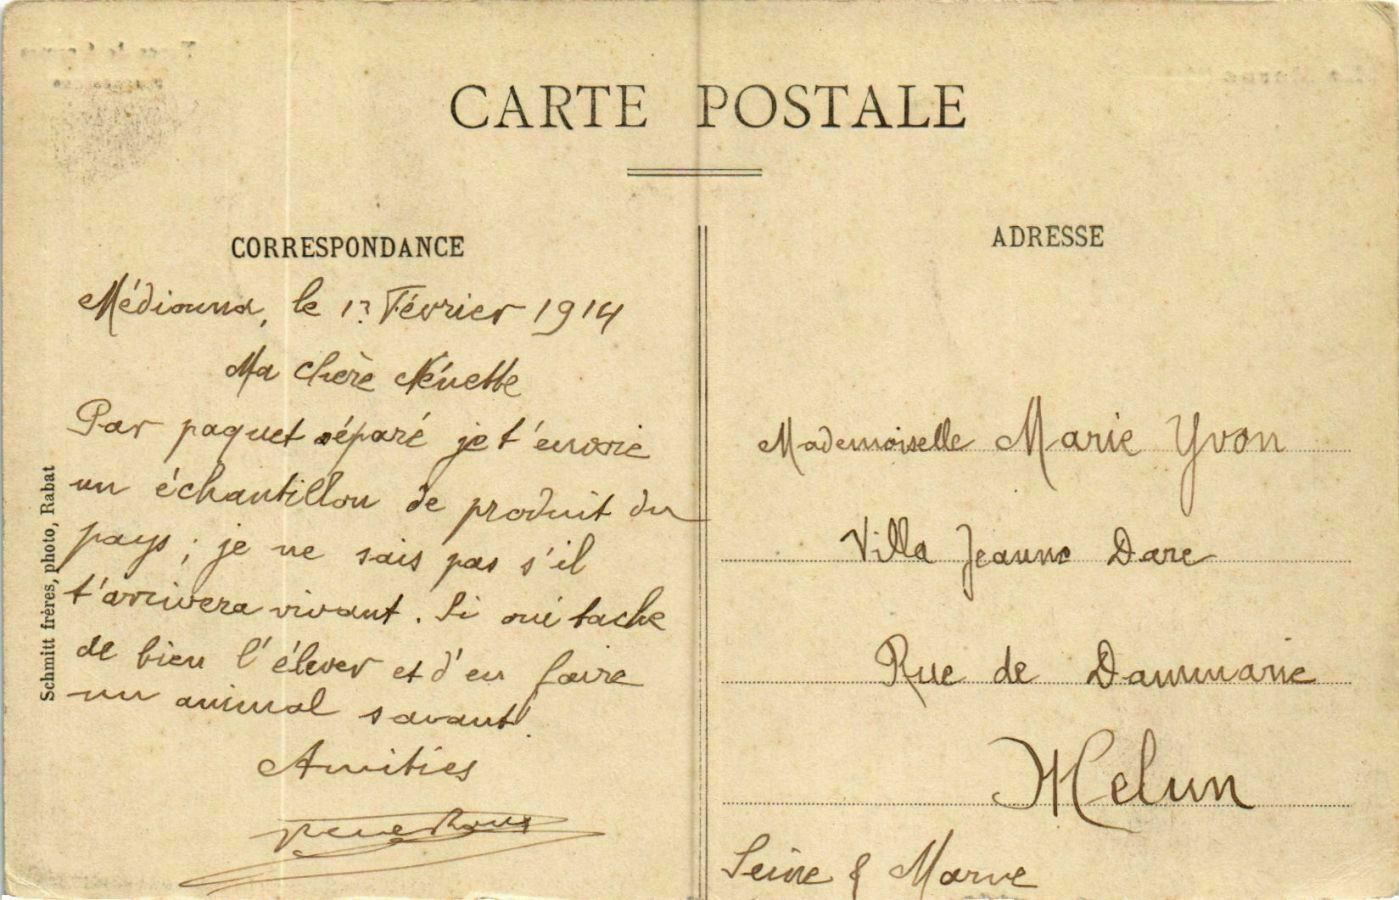 CARTE POSTALE
CORRESPONDANCE
Médiouna, le 1? Février 1914
Ma chère Nénette
Par paquet séparé je t'envoie
un échantillon de produit du
pays ; je ne sais pas s'il
t'arrivera vivant. Si oui tache
de bien l'élever et d'en faire
un animal savant!
Amitiés
Schmitt frères, photo, Rabat
ADRESSE
Mademoiselle Marie Yvon
Villa Jeanne Darc
Rue de Dammarie
Melun
Seine & Marne